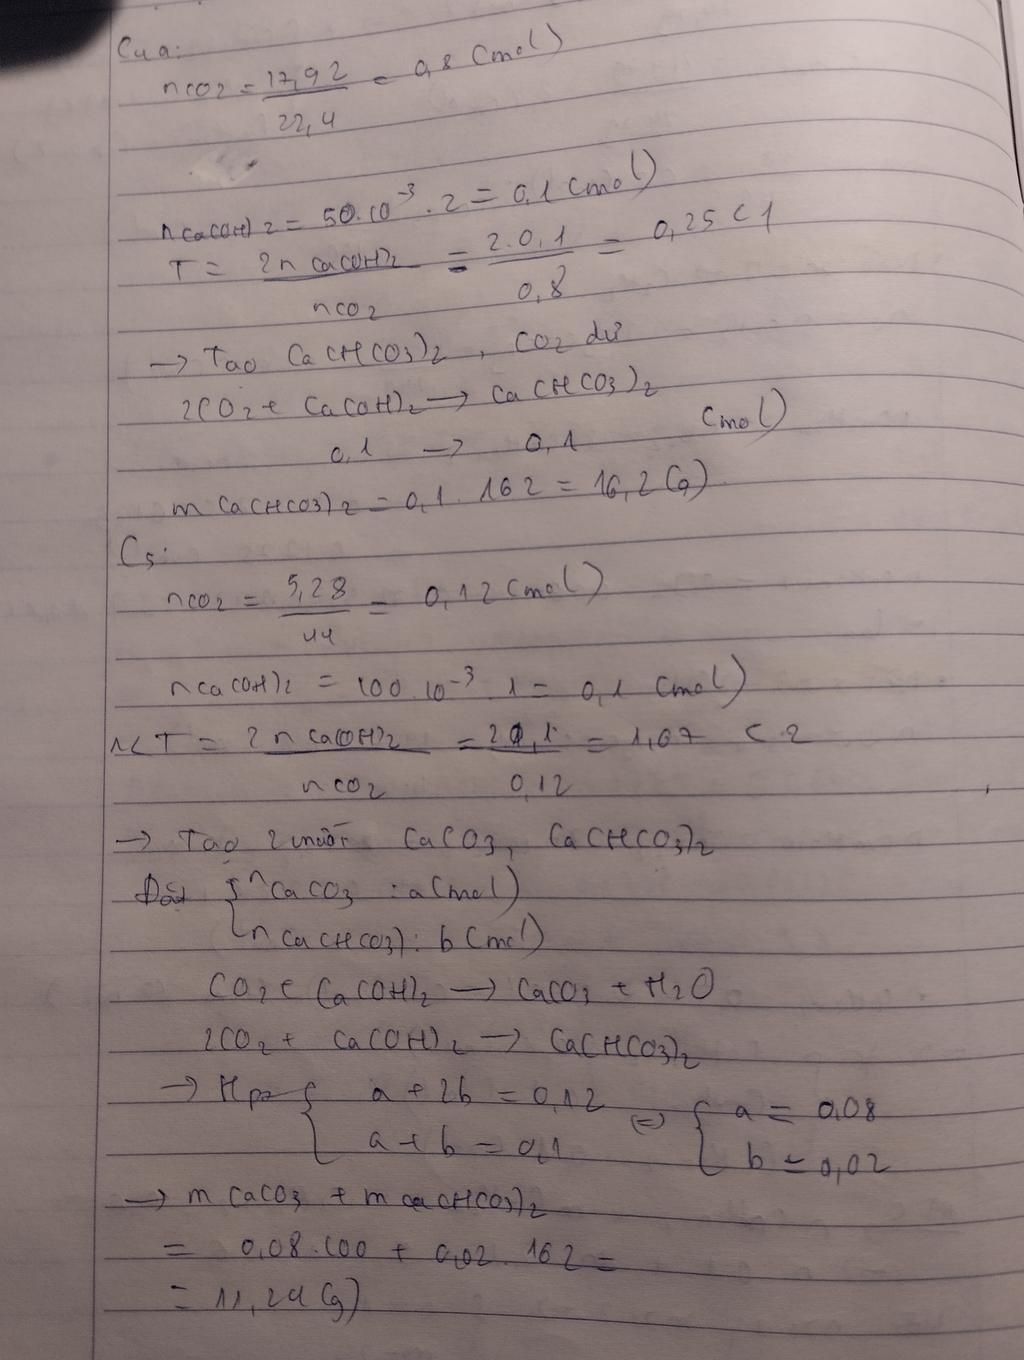 C4a:
nCO2 = 17,92 / 22,4 = 0,8 (mol)
nCa(OH)2 = 50.10⁻³ . 2 = 0,1 (mol)
T = 2nCa(OH)2 / nCO2 = 2.0,1 / 0,8 = 0,25 < 1
→ Tạo Ca(HCO3)2, CO2 dư
2CO2 + Ca(OH)2 → Ca(HCO3)2
0,1 → 0,1 (mol)
mCa(HCO3)2 = 0,1 . 162 = 16,2 (g)
C5:
nCO2 = 5,28 / 44 = 0,12 (mol)
nCa(OH)2 = 100.10⁻³ . 1 = 0,1 (mol)
1< T = 2nCa(OH)2 / nCO2 = 20,1 / 0,12 = 1,67 < 2
→ Tạo 2 muối CaCO3, Ca(HCO3)2
Đặt { nCaCO3 : a (mol)
nCa(HCO3) : b (mol)
CO2 + Ca(OH)2 → CaCO3 + H2O
2CO2 + Ca(OH)2 → Ca(HCO3)2
→ Hpt { a + 2b = 0,12 ⇔ { a = 0,08
a + b = 0,1 b = 0,02
→ mCaCO3 + mCa(HCO3)2
= 0,08.100 + 0,02 . 162 =
= 11,24 (g)